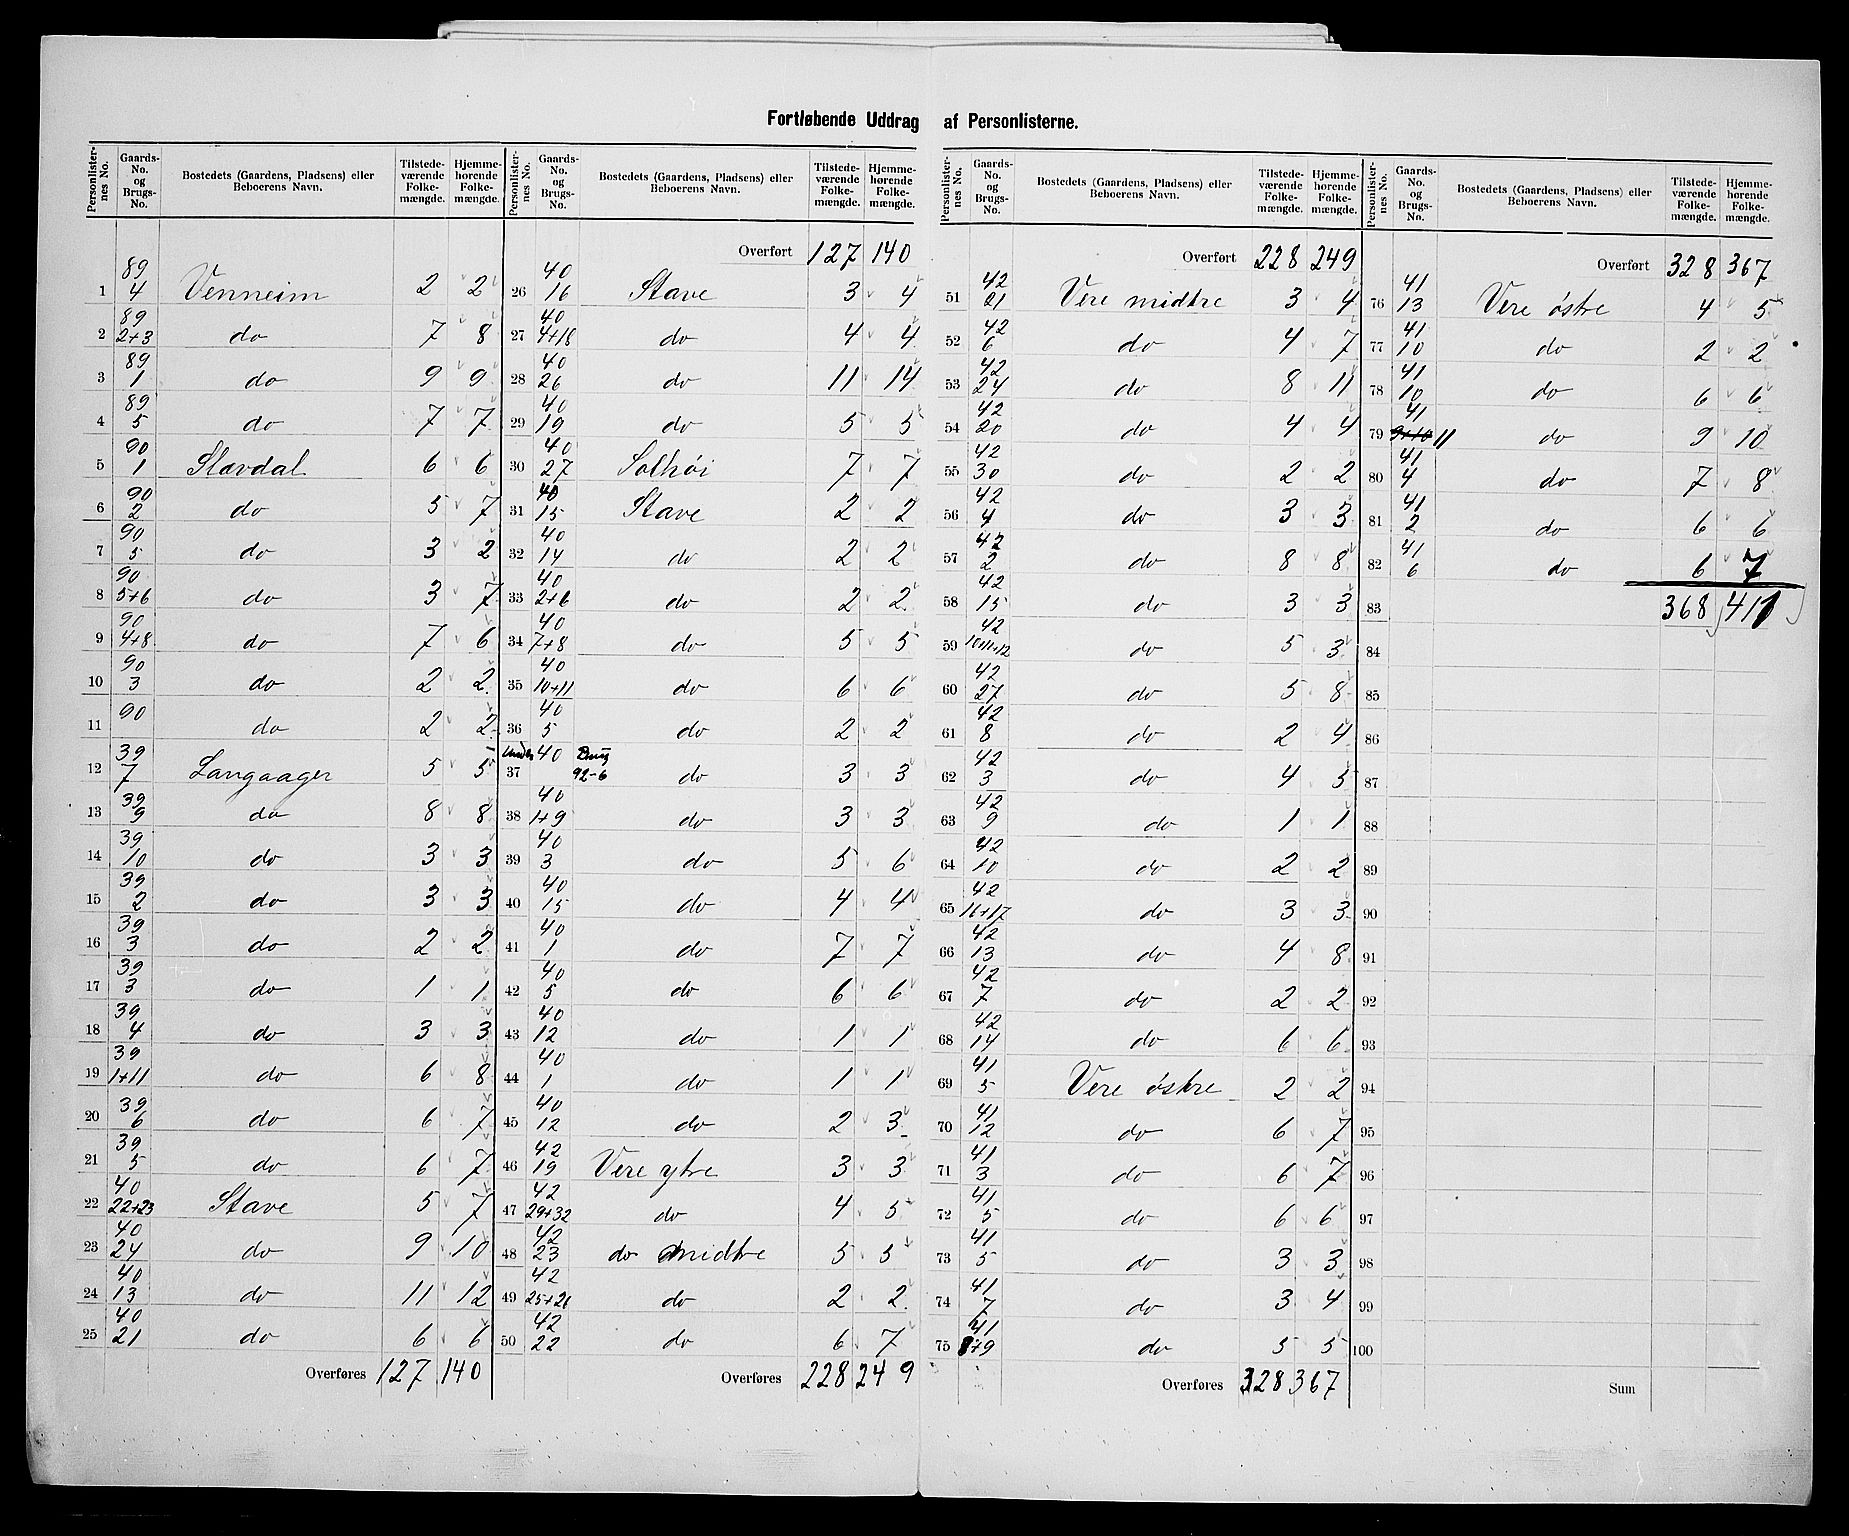 Fortløbende Uddrag af Personlisterne.
Personlister-nes No. | Gaards-No. og Brugs-No. | Bostedets (Gaardens, Pladsens) eller Beboerens Navn. | Tilstede-værende Folke-mængde. | Hjemme-hørende Folke-mængde.
1 89 4 Venneim 2 2
2 89 2+3 do 7 8
3 89 1 do 9 9
4 89 5 do 7 7
5 90 1 Slævdal 6 6
6 90 2 do 5 7
7 90 5 do 3 2
8 90 5+6 do 3 7
9 90 4+8 do 7 6
10 90 3 do 2 2
11 90 do 2 2
12 39 7 Langaager 5 5
13 39 9 do 8 8
14 39 10 do 3 3
15 39 2 do 3 3
16 39 3 do 2 2
17 39 3 do 1 1
18 39 4 do 3 3
19 39 1+11 do 6 8
20 39 6 do 6 7
21 39 5 do 6 7
22 40 22+23 Stave 5 7
23 40 24 do 9 10
24 40 13 do 11 12
25 40 21 do 6 6
Overføres 127 140
Personlister-nes No. | Gaards-No. og Brugs-No. | Bostedets (Gaardens, Pladsens) eller Beboerens Navn. | Tilstede-værende Folke-mængde. | Hjemme-hørende Folke-mængde.
Overført 127 140
26 40 16 Stave 3 4
27 40 4+18 do 4 4
28 40 26 do 11 14
29 40 19 do 5 5
30 40 27 Solhøi 7 7
31 40 15 Stave 2 2
32 40 14 do 2 2
33 40 2+6 do 2 2
34 40 7+8 do 5 5
35 40 10+11 do 6 6
36 40 5 do 2 2
37 40 92-6 do 3 3
38 40 1+9 do 3 3
39 40 3 do 5 6
40 40 15 do 4 4
41 40 1 do 7 7
42 40 5 do 6 6
43 40 12 do 1 1
44 40 1 do 1 1
45 40 12 do 2 3
46 42 19 Vere ytre 3 3
47 42 29+32 do 4 5
48 42 23 do midtre 5 5
49 42 25+26 do 2 2
50 42 22 do 6 7
Overføres 228 249
Personlister-nes No. | Gaards-No. og Brugs-No. | Bostedets (Gaardens, Pladsens) eller Beboerens Navn. | Tilstede-værende Folke-mængde. | Hjemme-hørende Folke-mængde.
Overført 228 249
51 42 21 Vere midtre 3 4
52 42 6 do 4 7
53 42 24 do 8 11
54 42 20 do 4 4
55 42 30 do 2 2
56 42 4 do 3 3
57 42 2 do 8 8
58 42 15 do 3 3
59 42 10+11+12 do 5 3
60 42 27 do 5 8
61 42 8 do 2 4
62 42 3 do 4 5
63 42 9 do 1 1
64 42 10 do 2 2
65 42 16+17 do 3 3
66 42 13 do 4 8
67 42 7 do 2 2
68 42 14 do 6 6
69 41 5 Vere østre 2 2
70 41 12 do 6 7
71 41 3 do 6 7
72 41 5 do 6 6
73 41 5 do 3 3
74 41 7 do 3 4
75 41 8+9 do 5 5
Overføres 328 367
Personlister-nes No. | Gaards-No. og Brugs-No. | Bostedets (Gaardens, Pladsens) eller Beboerens Navn. | Tilstede-værende Folke-mængde. | Hjemme-hørende Folke-mængde.
Overført 328 367
76 41 13 Vere østre 4 5
77 41 10 do 2 2
78 41 10 do 6 6
79 41 11 do 9 10
80 41 4 do 7 8
81 41 2 do 6 6
82 41 6 do 6 7
83 368 411
84
85
86
87
88
89
90
91
92
93
94
95
96
97
98
99
100
Sum